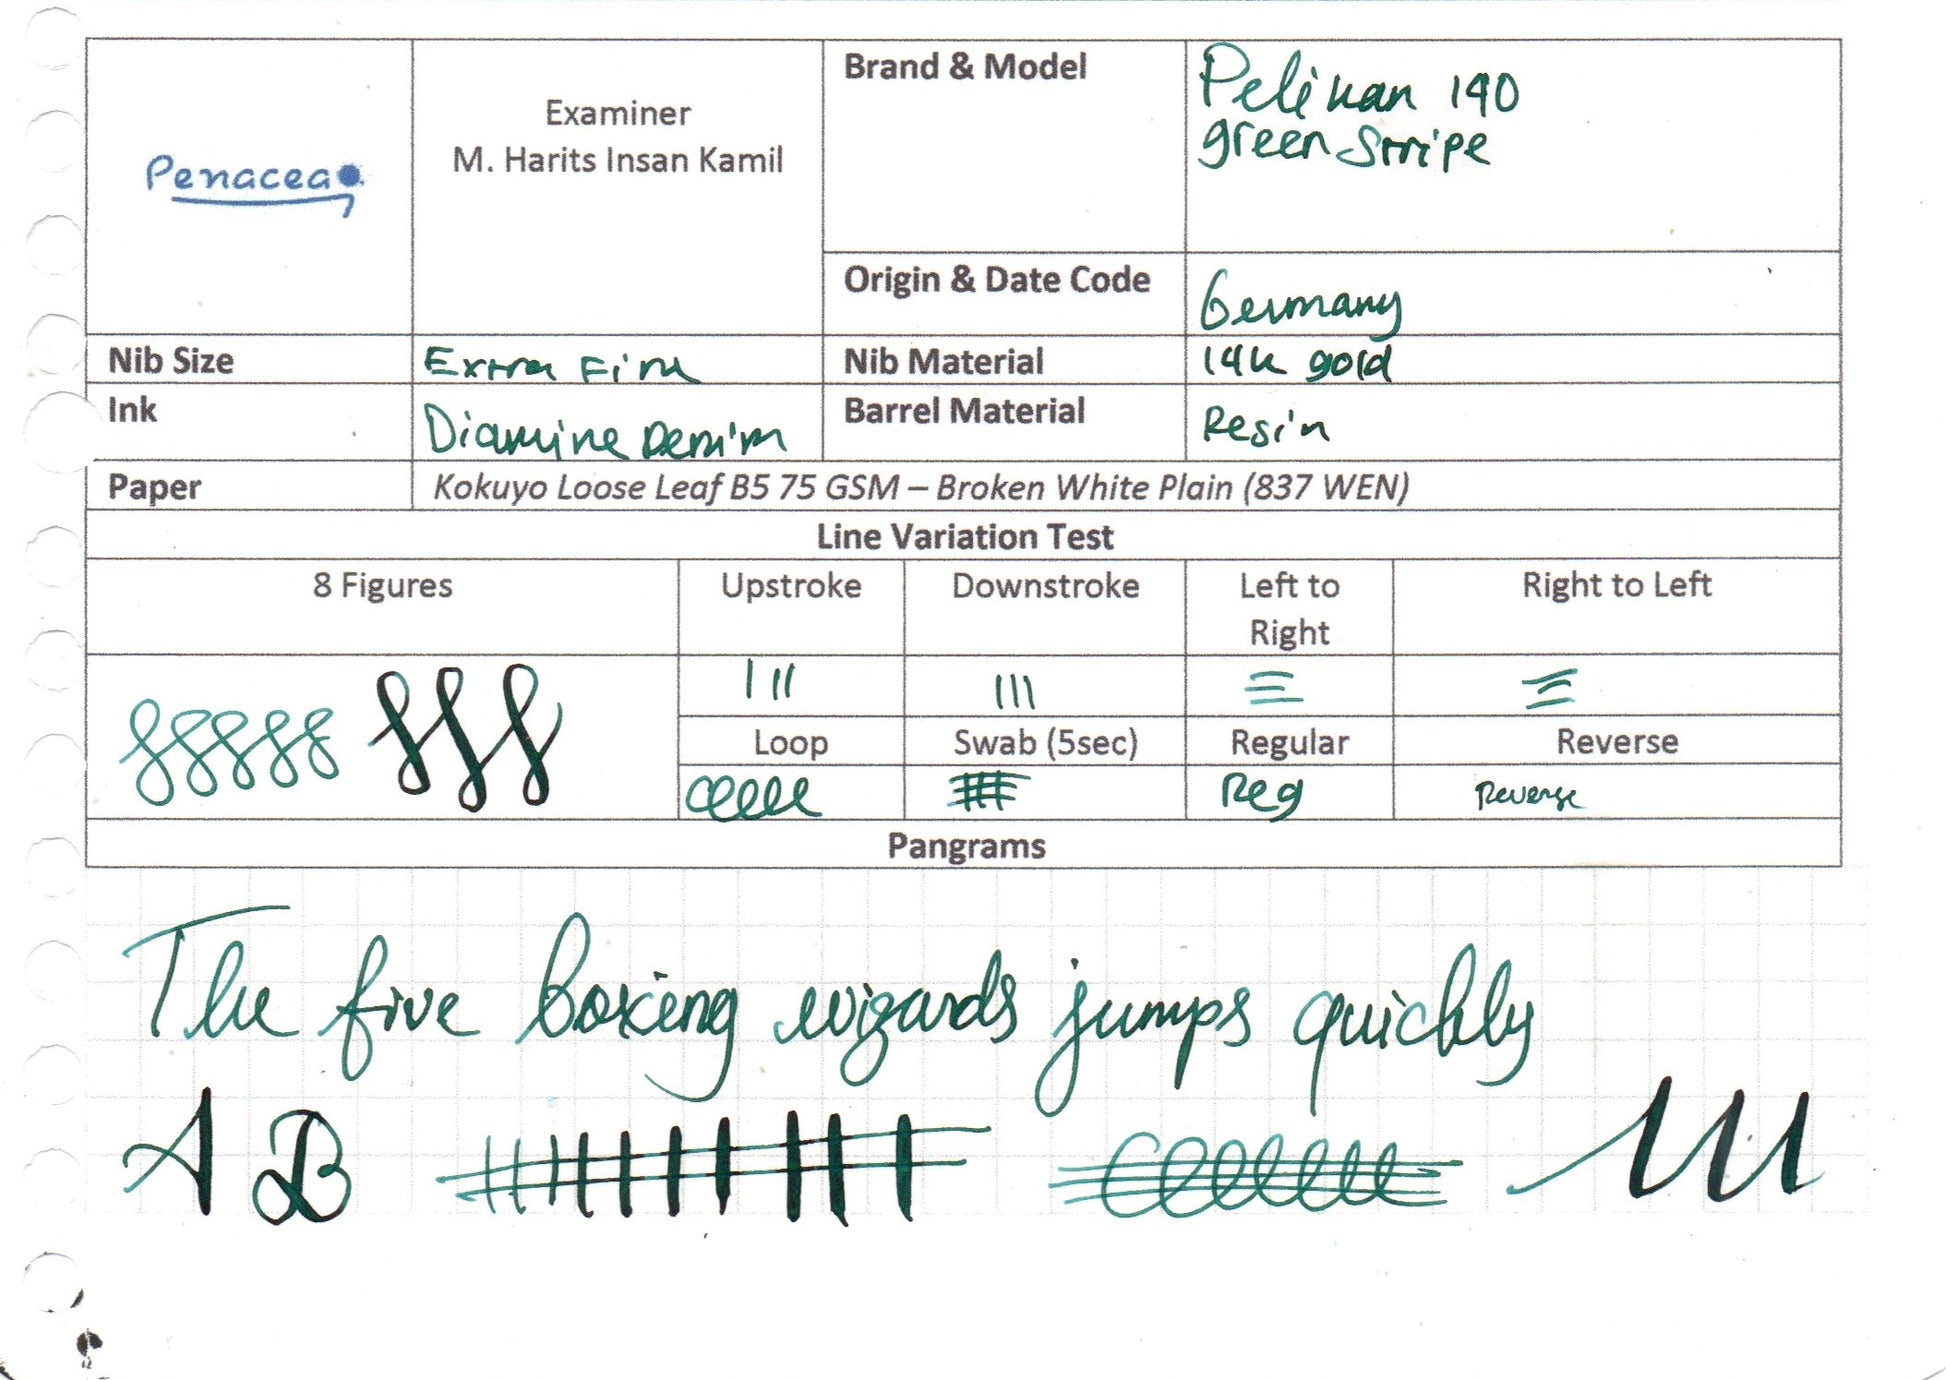 Penacea
Examiner
M. Harits Insan Kamil
Brand & Model
Pelikan 140
green Stripe
Origin & Date Code
Germany
Nib Size
Extra Fine
Nib Material
14k gold
Ink
Diamine Denim
Barrel Material
Resin
Paper
Kokuyo Loose Leaf B5 75 GSM – Broken White Plain (837 WEN)
Line Variation Test
8 Figures
Upstroke
Downstroke
Left to
Right
Right to Left
Loop
Swab (5sec)
Regular
Reverse
Reg
Reverse
Pangrams
The five boxing wizards jumps quickly
A B